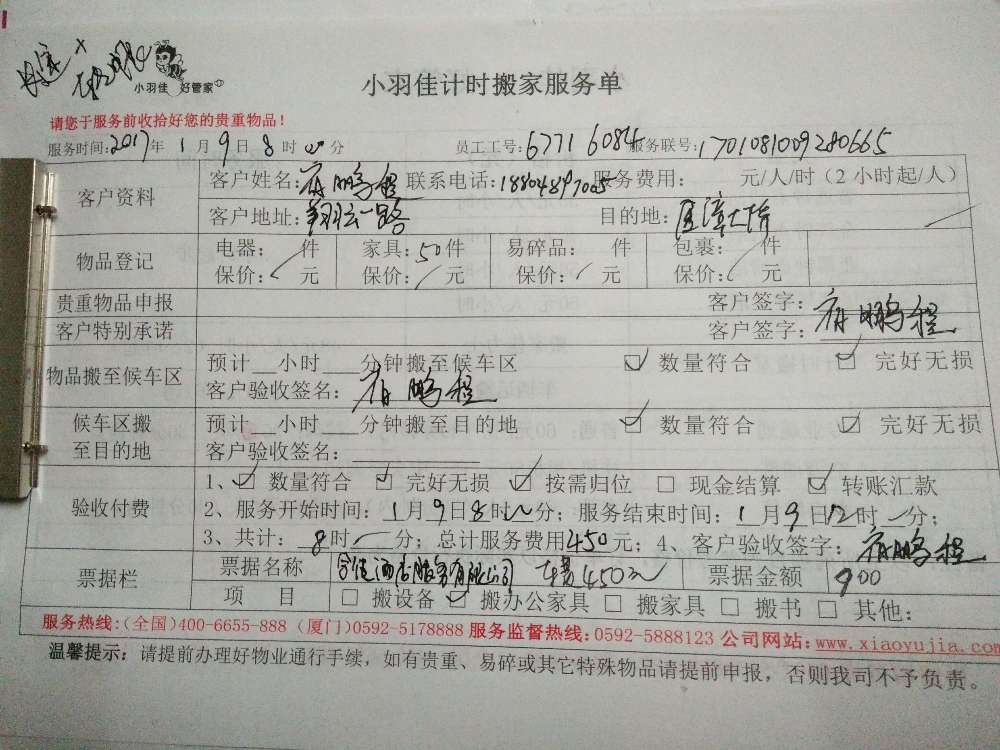 小羽佳 好管家
小羽佳计时搬家服务单
请您于服务前收拾好您的贵重物品！
服务时间:2017年1月9日8时 分 员工工号:6771 6084 服务联号:1701081009280665
客户资料 客户姓名: 鹏程 联系电话:18804897005 服务费用: 元/人/时（2小时起/人）
客户地址:翔云一路 目的地:
物品登记 电器: 件 家具:50件 易碎品: 件 包裹: 件
保价: 元 保价: 元 保价: 元 保价: 元
贵重物品申报 客户签字: 鹏程
客户特别承诺 客户签字:
物品搬至候车区 预计__小时___分钟搬至候车区 ☑ 数量符合 ☑ 完好无损
客户验收签名: 鹏程
候车区搬至目的地 预计__小时___分钟搬至目的地 ☑ 数量符合 ☑ 完好无损
客户验收签名:
验收付费 1、☑ 数量符合 ☑ 完好无损 ☑ 按需归位 □ 现金结算 ☑ 转账汇款
2、服务开始时间:1月9日8时 分；服务结束时间:1月9日12时 分；
3、共计:8时 分；总计服务费用450元；4、客户验收签字: 鹏程
票据栏 票据名称 酒店服务有限公司 车费450元 票据金额 900
项 目 □ 搬设备 ☑ 搬办公家具 □ 搬家具 □ 搬书 □ 其他:
服务热线:(全国)400-6655-888 (厦门)0592-5178888 服务监督热线:0592-5888123 公司网站:www.xiaoyujia.com
温馨提示：请提前办理好物业通行手续，如有贵重、易碎或其它特殊物品请提前申报，否则我司不予负责。